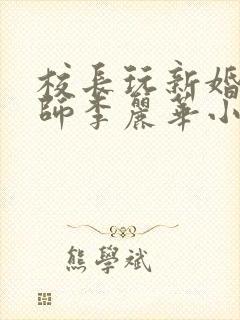 校長玩新婚
師李麗華小
熊學斌